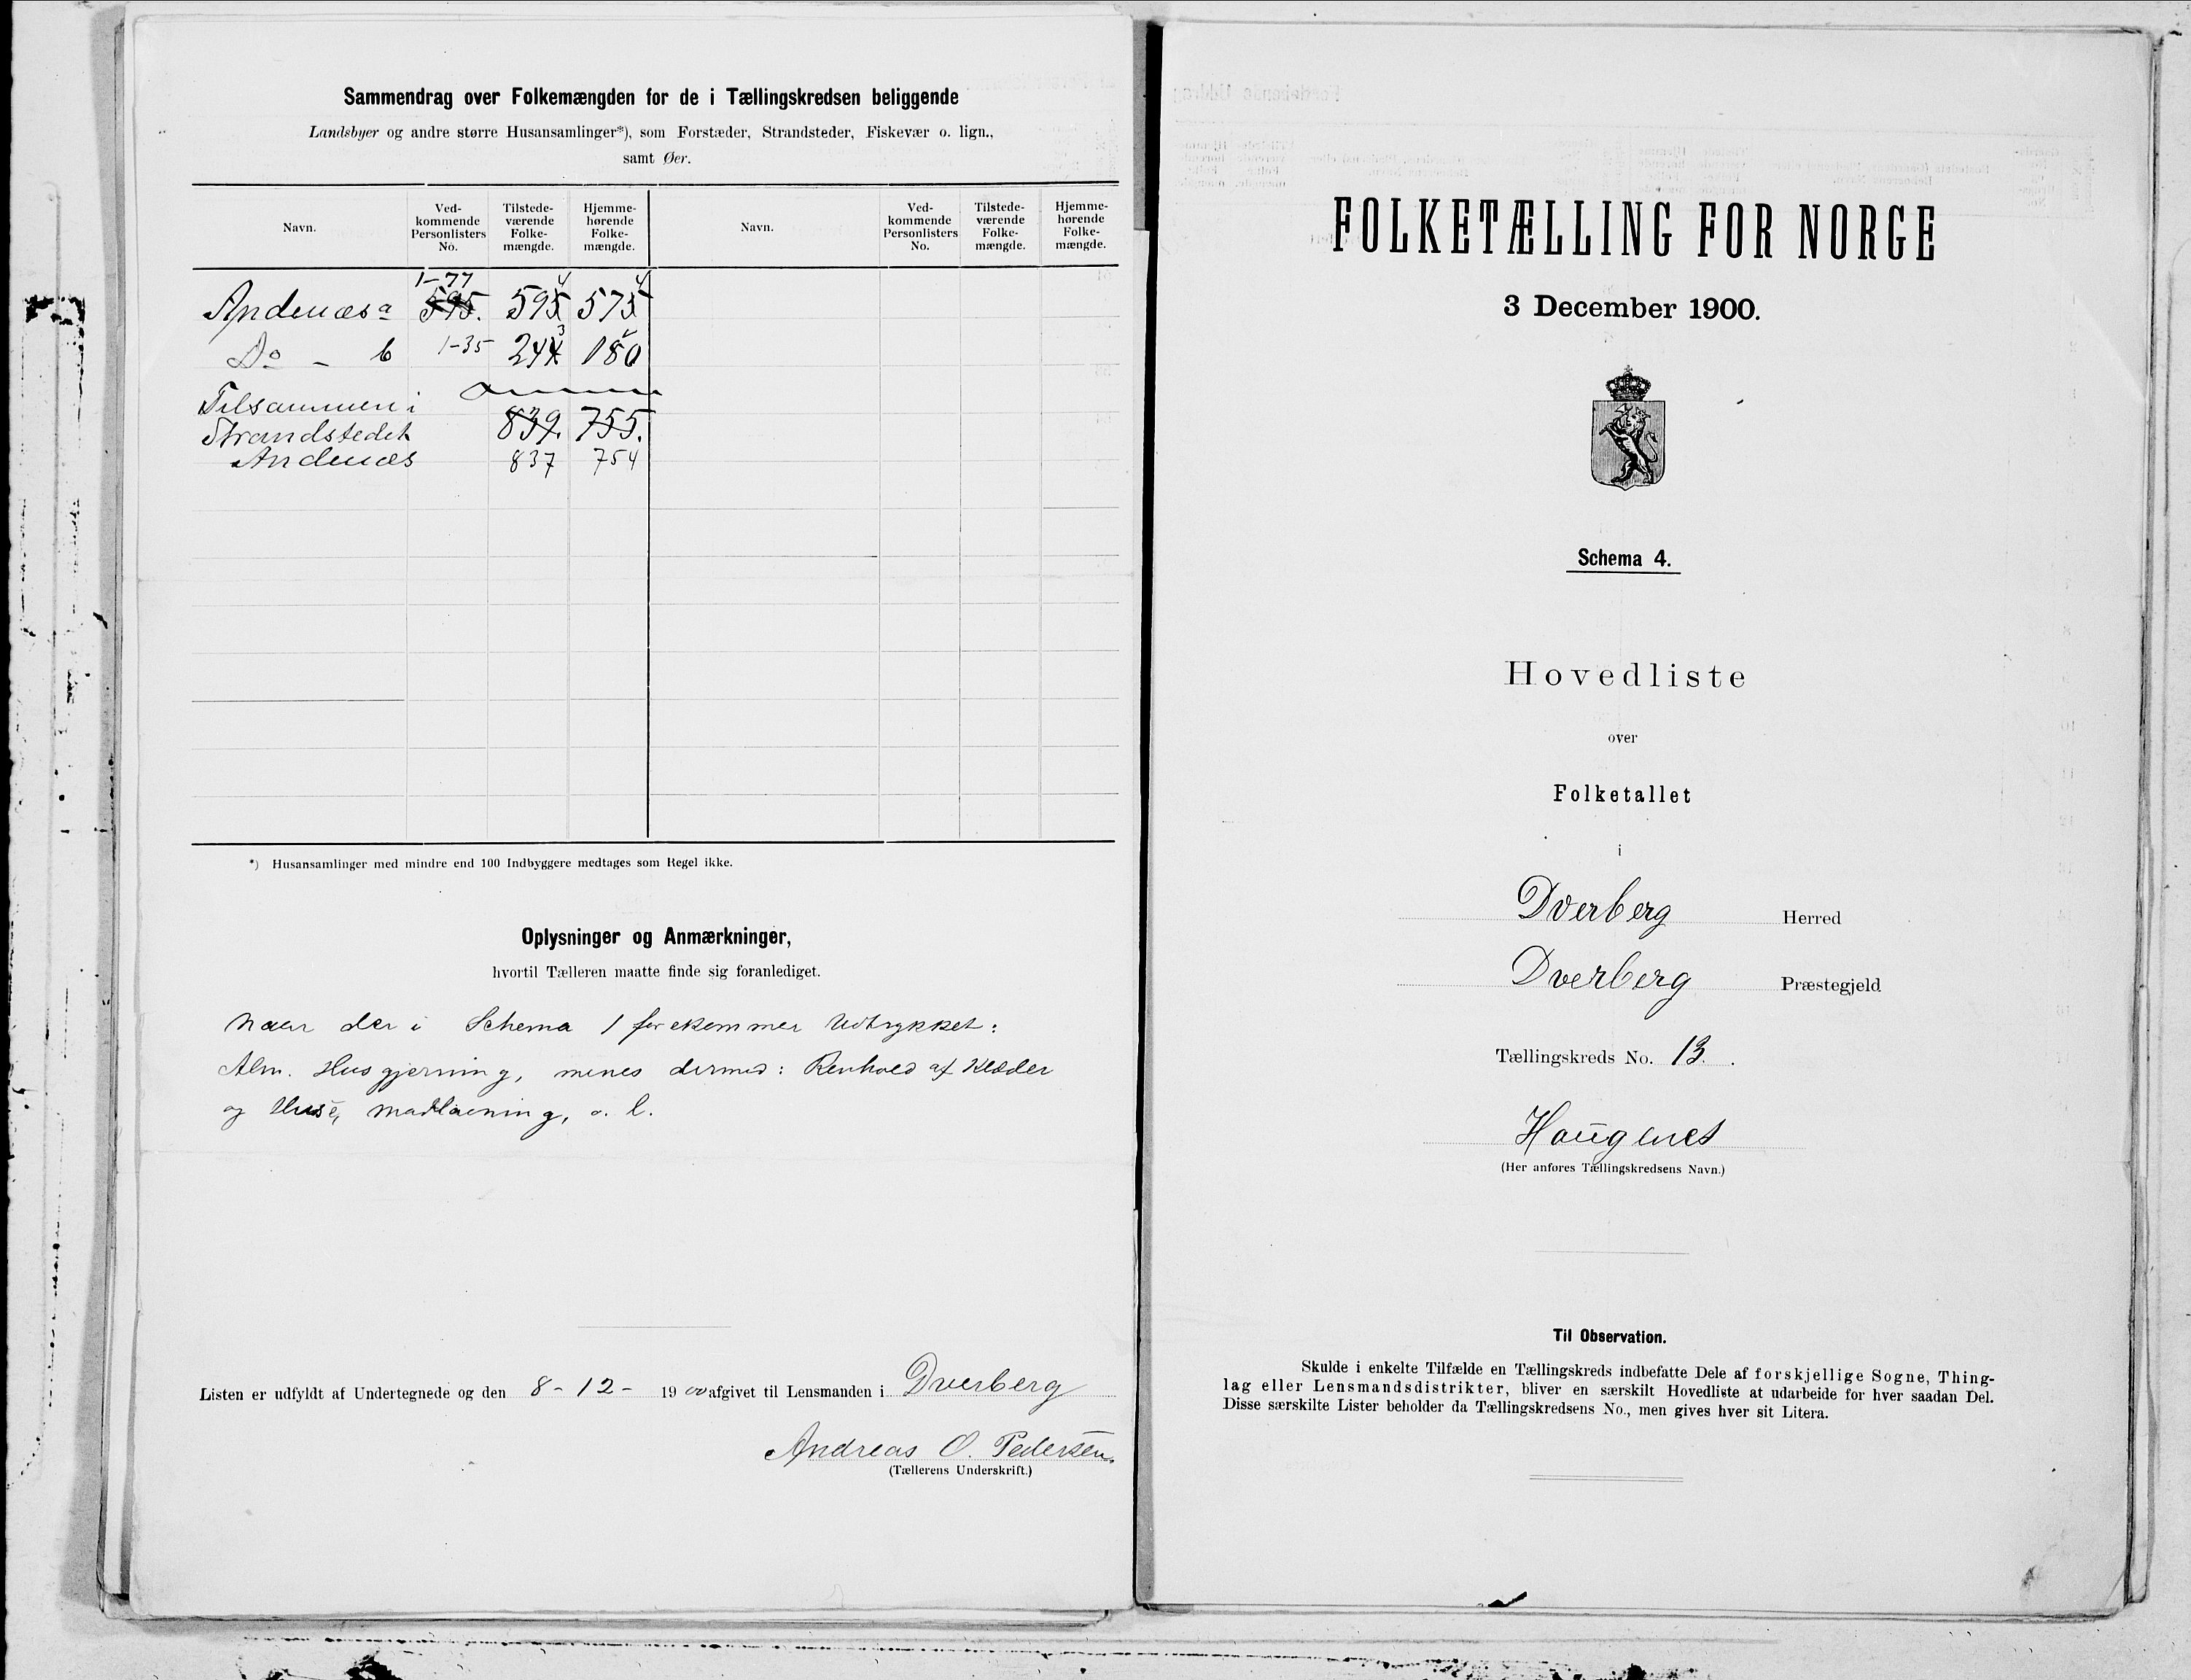 Sammendrag over Folkemængden for de i Tællingskredsen beliggende
Landsbyer og andre større Husansamlinger*), som Forstæder, Strandsteder, Fiskevær o. lign.,
samt Øer.
Navn. Ved-kommende Personlisters No. Tilstede-værende Folke-mængde. Hjemme-hørende Folke-mængde. Navn. Ved-kommende Personlisters No. Tilstede-værende Folke-mængde. Hjemme-hørende Folke-mængde.
1-77 4 4
Andenæs a 595. 595 575
3
Do - b 1-35 244 180
Tilsammen i
Strandstedet 839. 755.
Andenæs 837 754
*) Husansamlinger med mindre end 100 Indbyggere medtages som Regel ikke.
Oplysninger og Anmærkninger,
hvortil Tælleren maatte finde sig foranlediget.
Naar der i Schema 1 forekommer Udtrykket:
Alm. Husgjerning, menes dermed: Renhold af Klæder
og Huse, madlavning, o. l.
Listen er udfyldt af Undertegnede og den 8-12- 1900 afgivet til Lensmanden i Dverberg
Andreas O. Pedersen.
(Tællerens Underskrift.)
FOLKETÆLLING FOR NORGE
3 December 1900.
Schema 4.
Hovedliste
over
Folketallet
i
Dverberg Herred
Dverberg Præstegjeld
Tællingskreds No. 13.
Haugnes
(Her anføres Tællingskredsens Navn.)
Til Observation.
Skulde i enkelte Tilfælde en Tællingskreds indbefatte Dele af forskjellige Sogne, Thing-
lag eller Lensmandsdistrikter, bliver en særskilt Hovedliste at udarbeide for hver saadan Del.
Disse særskilte Lister beholder da Tællingskredsens No., men gives hver sit Litera.